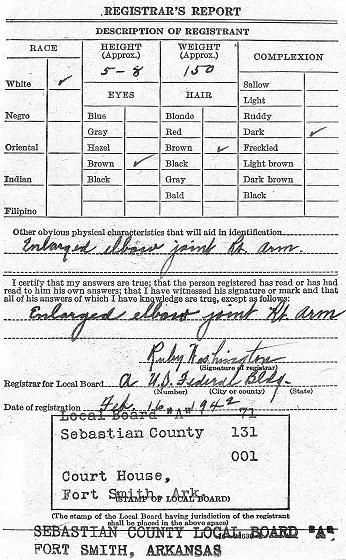 REGISTRAR'S REPORT
DESCRIPTION OF REGISTRANT
RACE
HEIGHT (Approx.)
WEIGHT (Approx.)
COMPLEXION
5-8
150
White ✓
EYES
HAIR
Sallow
Light
Negro
Blue
Blonde
Ruddy
Gray
Red
Dark ✓
Oriental
Hazel
Brown ✓
Freckled
Brown ✓
Black
Light brown
Indian
Black
Gray
Dark brown
Bald
Black
Filipino
Other obvious physical characteristics that will aid in identification
Enlarged elbow joint Rt. arm.
I certify that my answers are true; that the person registered has read or has had
read to him his own answers; that I have witnessed his signature or mark and that
all of his answers of which I have knowledge are true, except as follows:
Enlarged elbow joint Rt. arm
Ruby Washington
(Signature of registrar)
Registrar for Local Board A U.S. Federal Bldg.
(Number) (City or county) (State)
Date of registration Feb. 16, 1942
Local Board "A" 71
Sebastian County 131
001
Court House,
Fort Smith, Ark.
(STAMP OF LOCAL BOARD)
(The stamp of the Local Board having jurisdiction of the registrant
shall be placed in the above space)
SEBASTIAN COUNTY LOCAL BOARD "A"
FORT SMITH, ARKANSAS